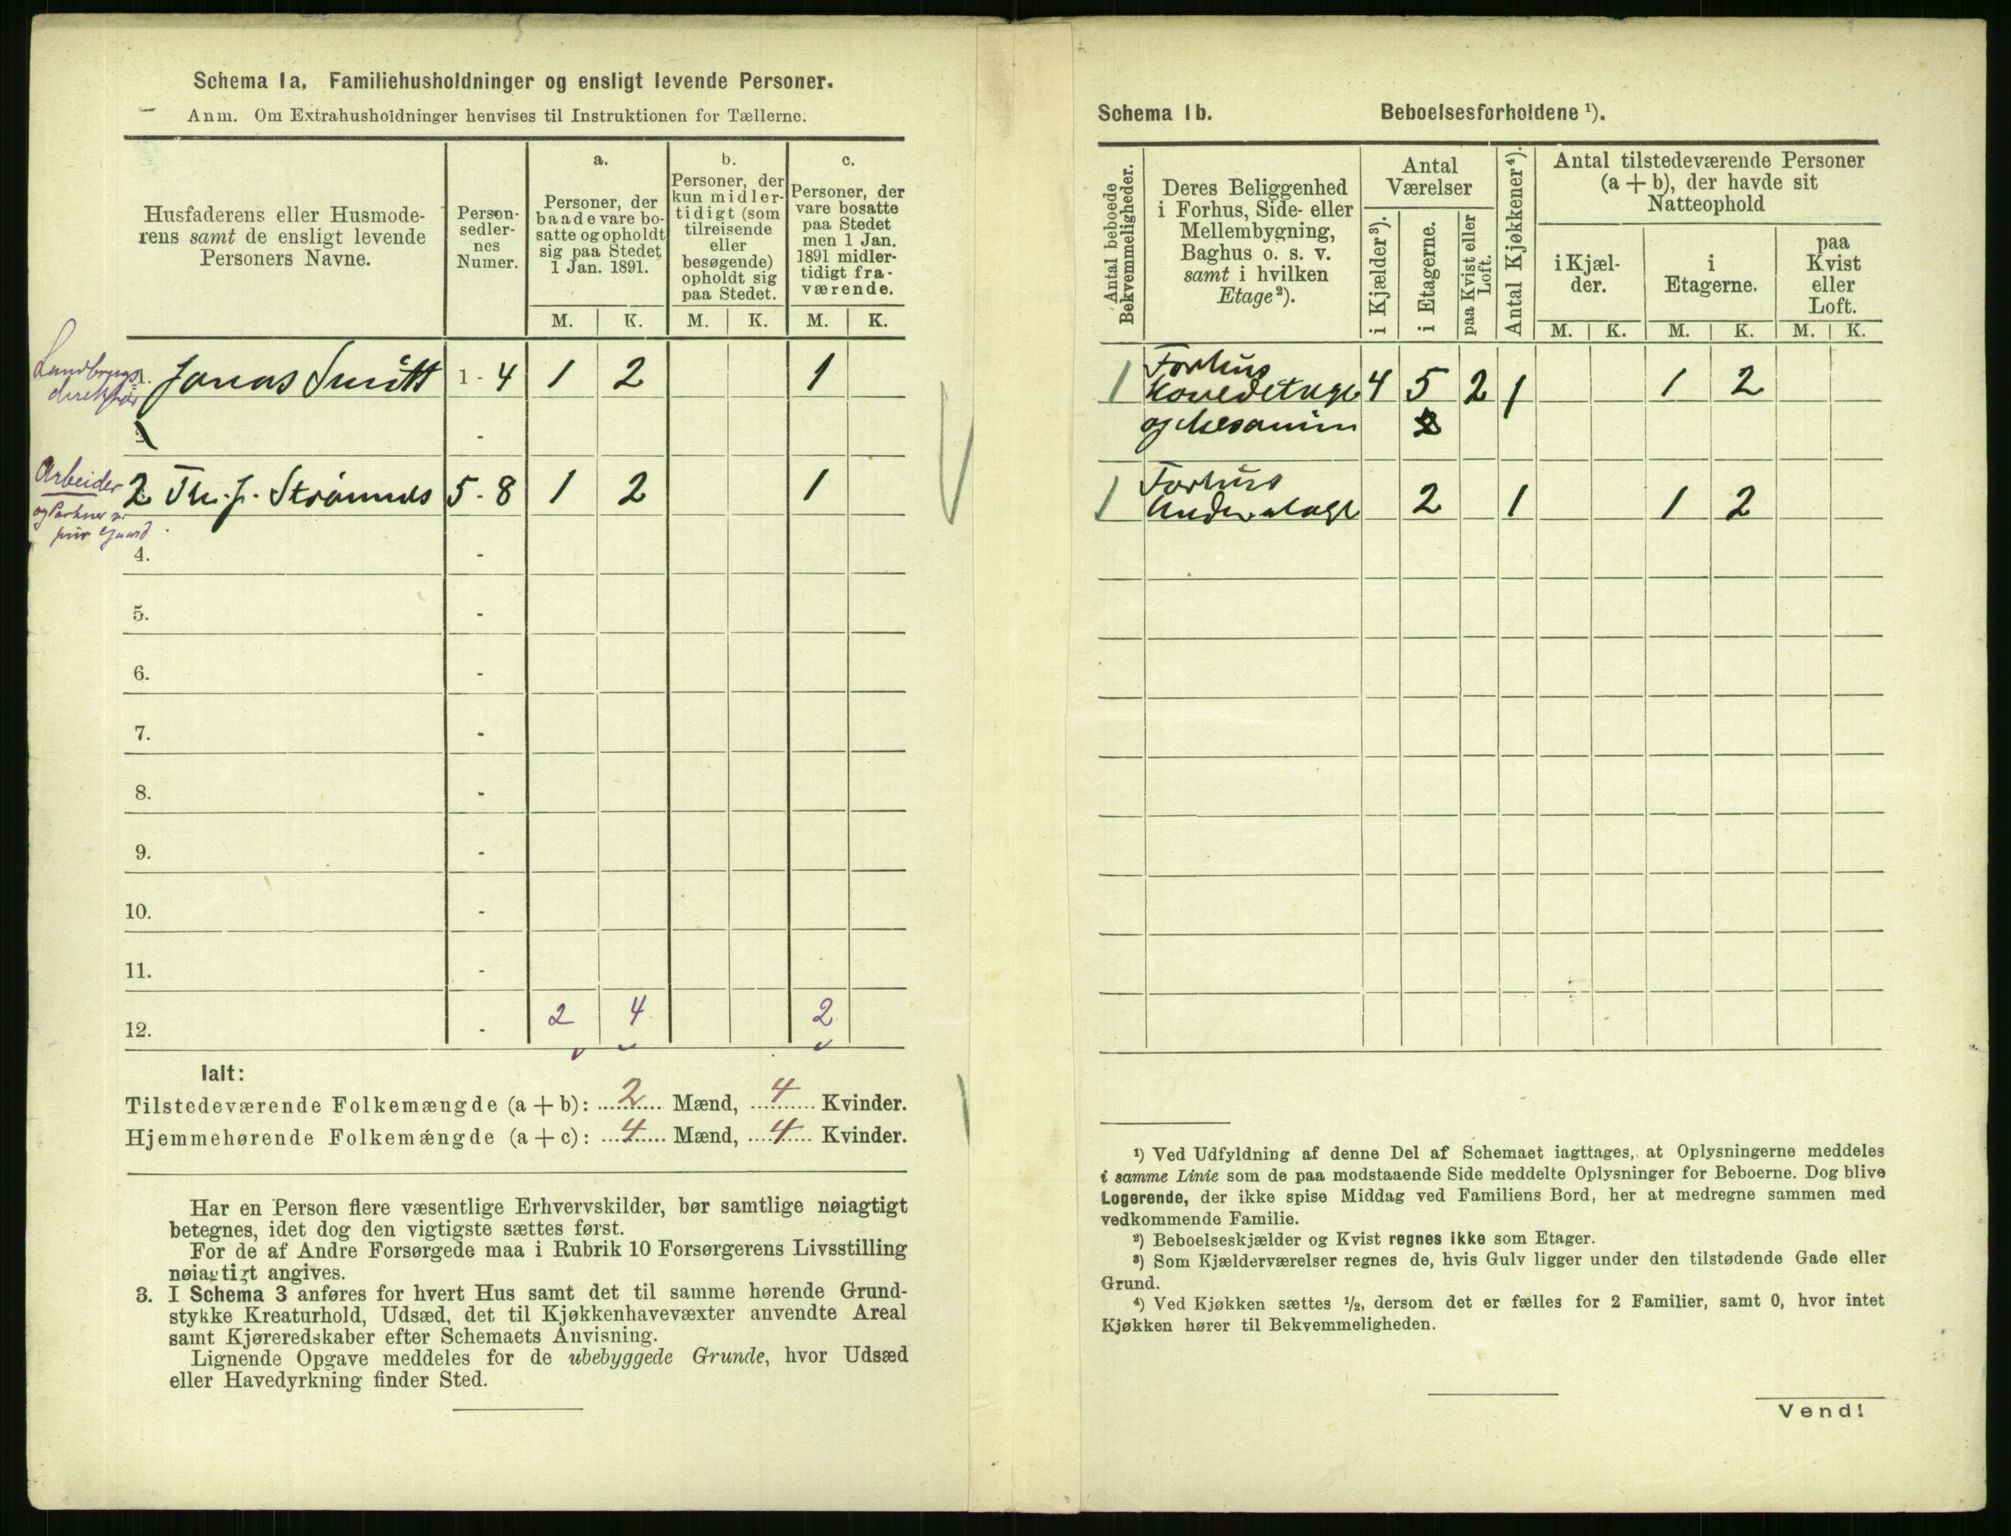 Schema 1a. Familiehusholdninger og ensligt levende Personer.
Anm. Om Extrahusholdninger henvises til Instruktionen for Tællerne.
Husfaderens eller Husmode-
rens samt de ensligt levende
Personers Navne.
Person-
sedler-
nes
Numer.
a.
Personer, der
baade vare bo-
satte og opholdt
sig paa Stedet
1 Jan. 1891.
b.
Personer, der
kun midler-
tidigt (som
tilreisende
eller
besøgende)
opholdt sig
paa Stedet.
c.
Personer, der
vare bosatte
paa Stedet
men 1 Jan.
1891 midler-
tidigt fra-
værende.
M. K. M. K. M. K.
Landbrugs
direktør
1. Jonas Smitt 1 - 4 1 2 1
-
Arbeider
2 Th. J. Strømnes 5 - 8 1 2 1
og
4. -
5. -
6. -
7. -
8. -
9. -
10. -
11. -
12. - 2 4 2
Ialt:
Tilstedeværende Folkemængde (a + b): 2 Mænd, 4 Kvinder.
Hjemmehørende Folkemængde (a + c): 4 Mænd, 4 Kvinder.
Har en Person flere væsentlige Erhvervskilder, bør samtlige nøiagtigt
betegnes, idet dog den vigtigste sættes først.
For de af Andre Forsørgede maa i Rubrik 10 Forsørgerens Livsstilling
nøiagtigt angives.
3. I Schema 3 anføres for hvert Hus samt det til samme hørende Grund-
stykke Kreaturhold, Udsæd, det til Kjøkkenhavevæxter anvendte Areal
samt Kjøreredskaber efter Schemaets Anvisning.
Lignende Opgave meddeles for de ubebyggede Grunde, hvor Udsæd
eller Havedyrkning finder Sted.
Schema 1b. Beboelsesforholdene ¹).
Antal beboede
Bekvemmeligheder.
Deres Beliggenhed
i Forhus, Side- eller
Mellembygning,
Baghus o. s. v.
samt i hvilken
Etage²).
Antal
Værelser
i Kjælder³).
i Etagerne.
paa Kvist eller
Loft.
Antal Kjøkkener⁴).
Antal tilstedeværende Personer
(a + b), der havde sit
Natteophold
i Kjæl-
der.
i
Etagerne.
paa
Kvist
eller
Loft.
M. K. M. K. M. K.
Forhus
1 Hovedetage 4 5 2 1 1 2
og Mesanin
Forhus
1 Underetage 2 1 1 2
¹) Ved Udfyldning af denne Del af Schemaet iagttages, at Oplysningerne meddeles
i samme Linie som de paa modstaaende Side meddelte Oplysninger for Beboerne. Dog blive
Logerende, der ikke spise Middag ved Familiens Bord, her at medregne sammen med
vedkommende Familie.
²) Beboelseskjælder og Kvist regnes ikke som Etager.
³) Som Kjælderværelser regnes de, hvis Gulv ligger under den tilstødende Gade eller
Grund.
⁴) Ved Kjøkken sættes ½, dersom det er fælles for 2 Familier, samt 0, hvor intet
Kjøkken hører til Bekvemmeligheden.
Vend!